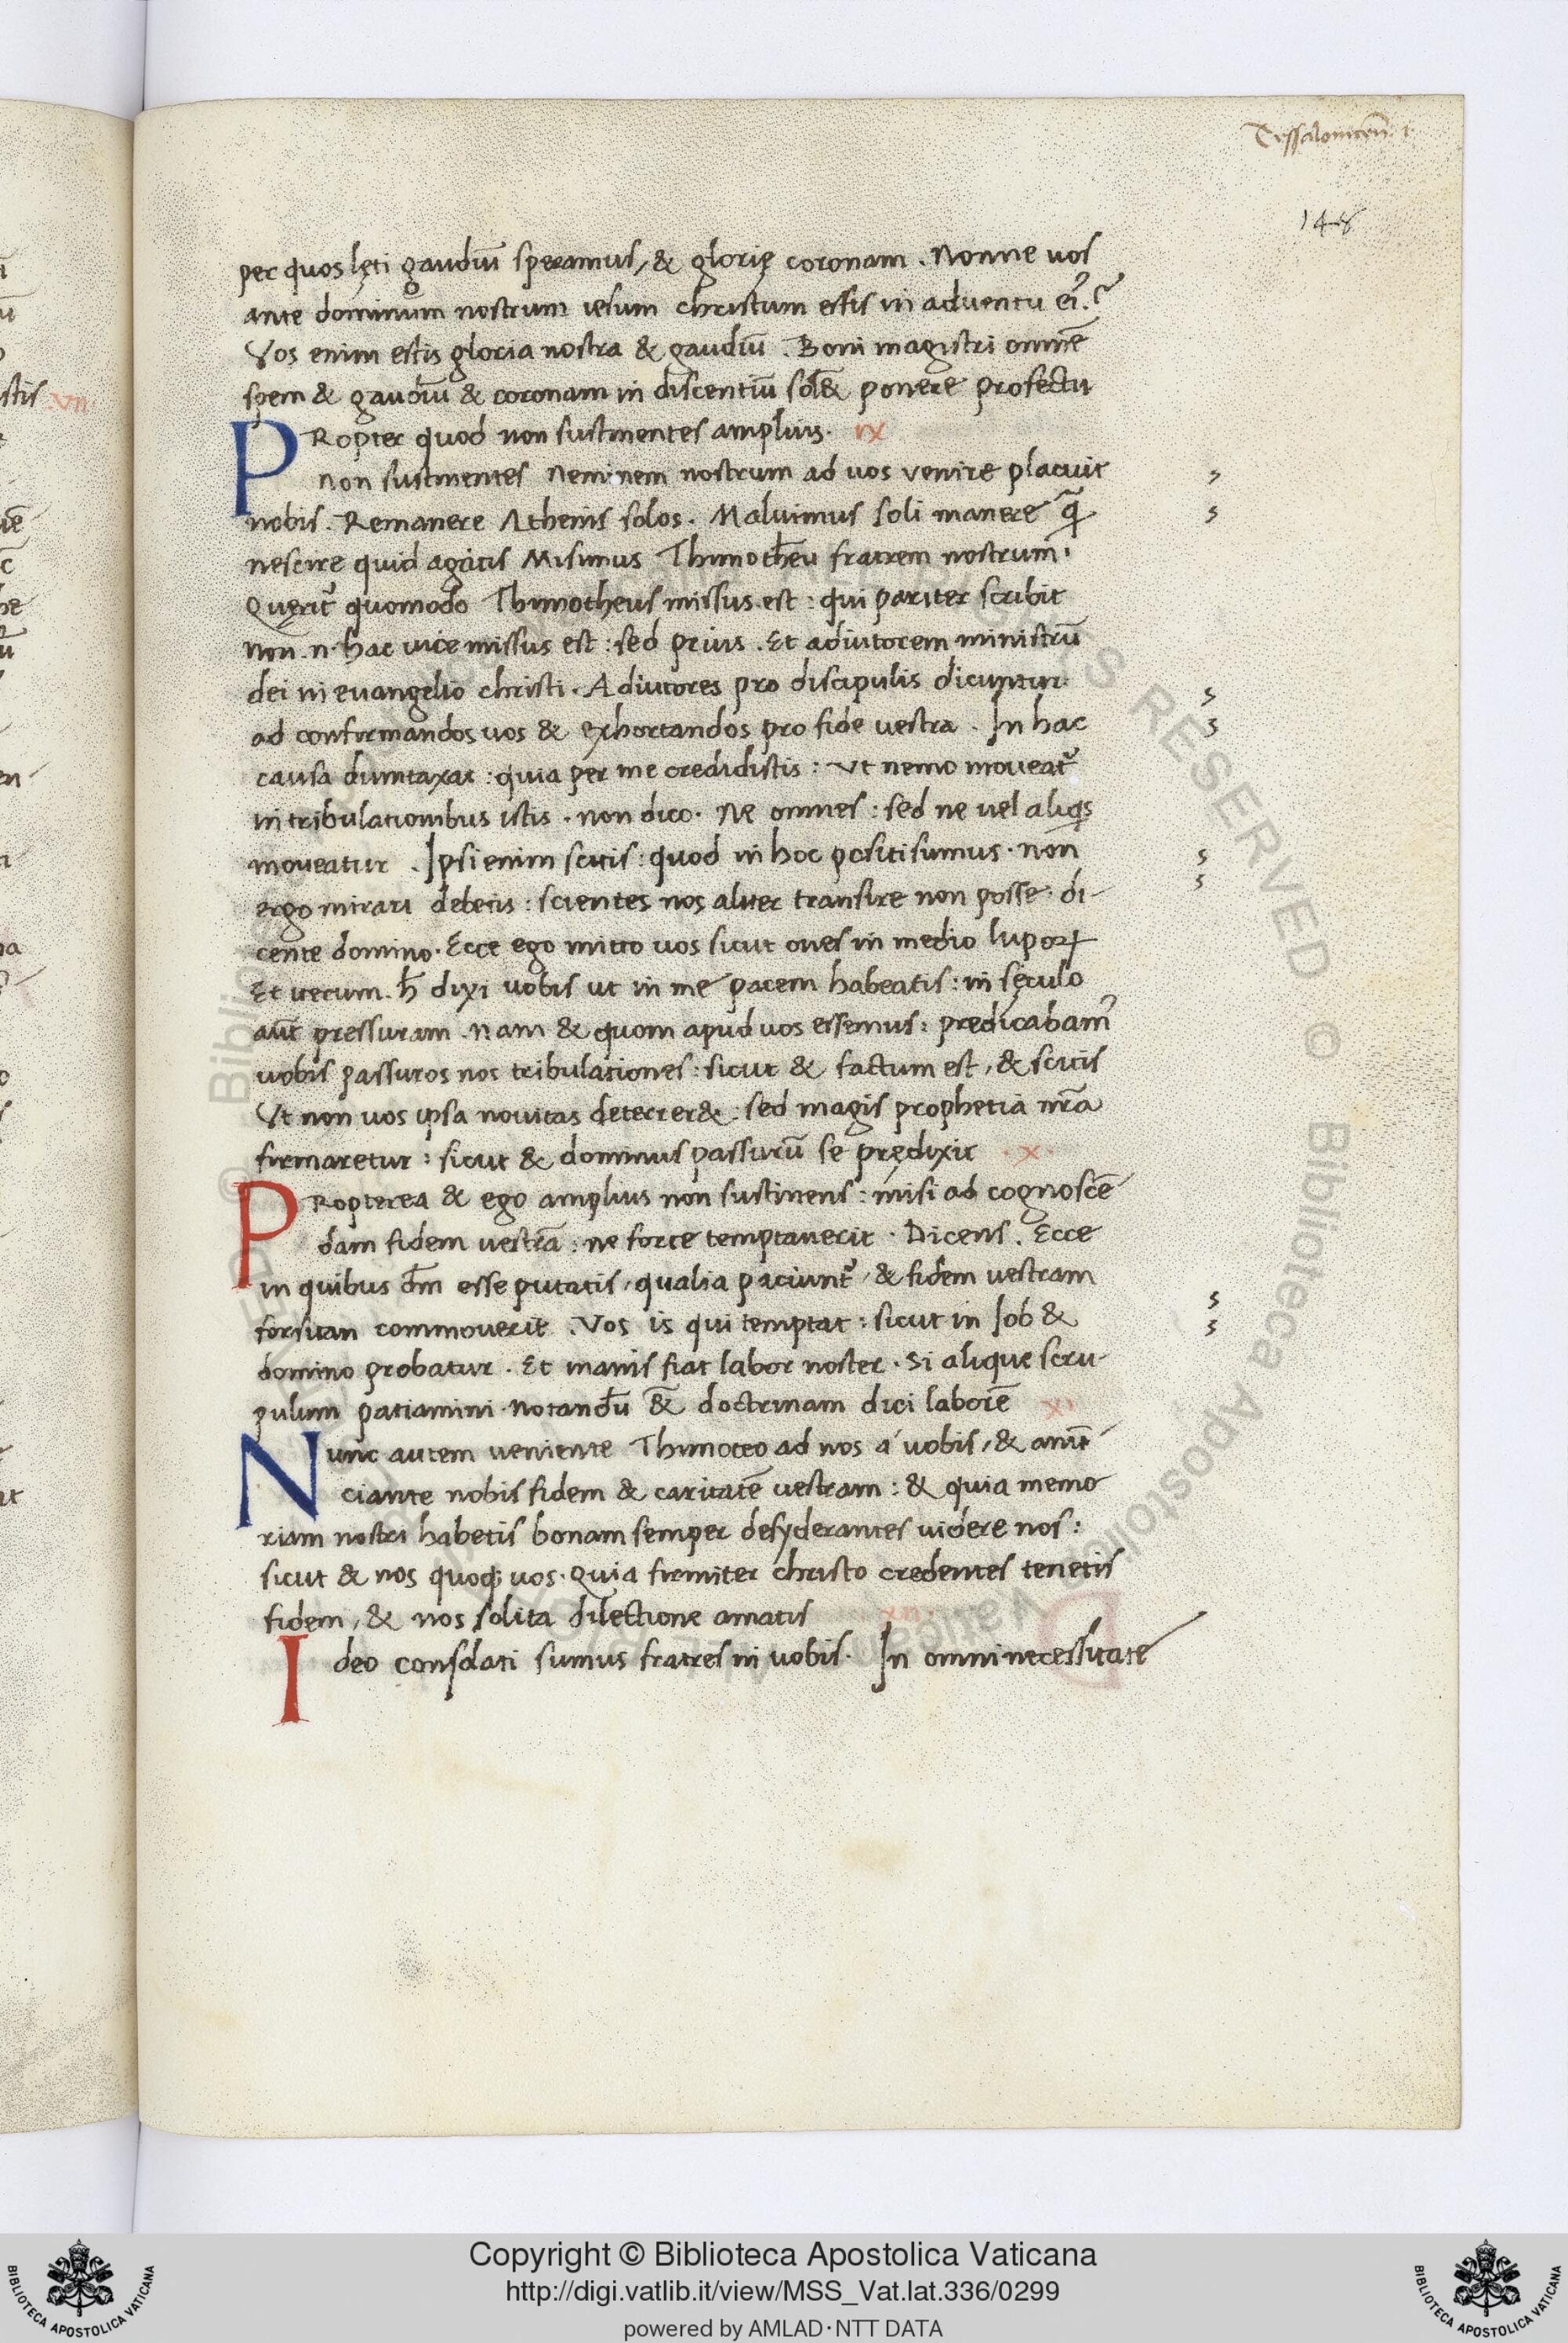 Tessalonicen̄ 1
148
per quos lęti gaudiū speramus, & glorię coronam. Nonne uos
ante dominum nostrum iesum christum estis in adventu eiꝰ?
Vos enim estis gloria nostra & gaudiū. Boni magistri omnē
spem & gaudiū & coronam in discentiū sol& ponere profectu
PRopter quod non sustinentes amplius. ix
non sustinentes Neminem nostrum ad uos venire placuit
nobis. Remanere Athenis solos. Maluimus soli manere q̄
nescire quid agatis Misimus Thimotheū fratrem nostrum.
Querit᷑ quomodo Thimotheus missus est: qui pariter scribit
Non .n. hac uice missus est: sed prius. Et adiutorem ministrū
dei in euangelio christi. Adiutores pro discipulis dicuntur
ad confirmandos uos & exhortandos pro fide vestra. In hac
causa dumtaxat: quia per me credidistis: Vt nemo moueat᷑
in tribulationibus istis. non dico. Ne omnes: sed ne uel aliqs
moueatur. Ipsi enim scitis: quod in hoc positi sumus. non
ergo mirari debetis: scientes nos aliter transire non posse. di-
cente domino. Ecce ego mitto uos sicut oues in medio lupoꝝ
Et iterum. h̄ dixi uobis ut in me pacem habeatis: in sęculo
aūt pressuram. Nam & quom apud uos essemus: predicabamꝰ
uobis passuros nos tribulationes: sicut & factum est, & scitis
Vt non uos ipsa nouitas deterrer&: sed magis prophetia nr̄a
firmaretur: sicut & dominus passurū se prędixit .x.
PRopterea & ego amplius non sustinens: misi ad cognoscē
dam fidem vestrā: ne forte temptauerit. Dicens. Ecce
in quibus dm̄ esse putatis, qualia paciunt᷑, & fidem vestram
forsitan commouerit. Vos is qui temptat: sicut in Job &
domino probatur. Et inanis fiat labor noster. Si alique scru-
pulum patiamini. Notandū & doctrinam dici laborē xi
Nunc autem veniente Thimoteo ad nos á uobis, & anūt
ciante nobis fidem & caritatē vestram: & quia memo
riam nostri habetis bonam semper desyderantes uidere nos:
sicut & nos quoq; uos. Quia firmiter christo credentes tenetis
fidem, & nos solita dilectione amatis
Ideo consolati sumus fratres in uobis. In omni necessitate
Copyright © Biblioteca Apostolica Vaticana
http://digi.vatlib.it/view/MSS_Vat.lat.336/0299
powered by AMLAD·NTT DATA